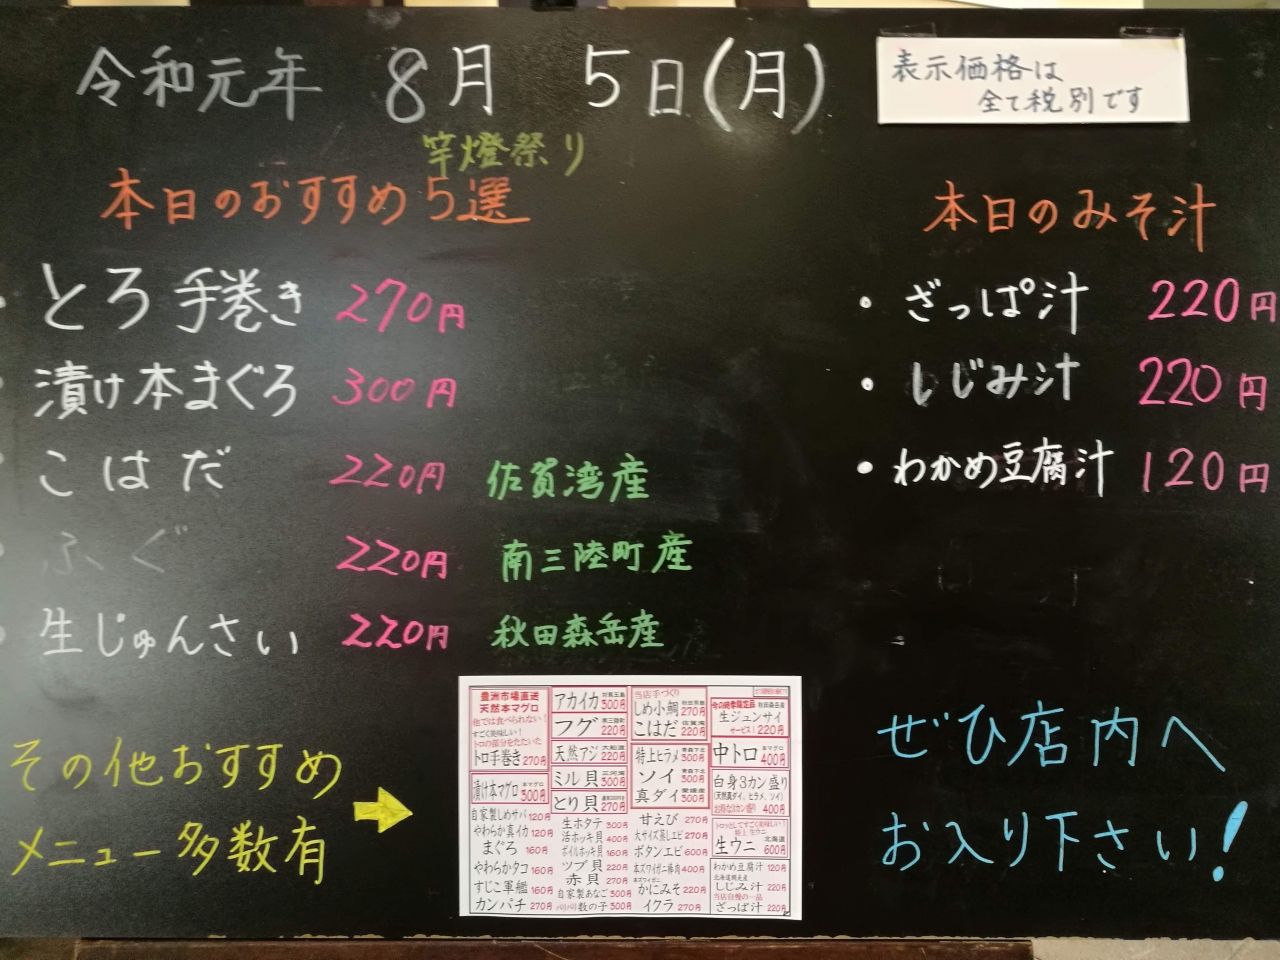 令和元年 8月 5日(月)
表示価格は
全て税別です
竿燈祭り
本日のおすすめ5選
・とろ手巻き 270円
・漬け本まぐろ 300円
・こはだ 220円 佐賀湾産
・ふぐ 220円 南三陸町産
・生じゅんさい 220円 秋田森岳産
その他おすすめ
メニュー多数有
本日のみそ汁
・ざっぱ汁 220円
・しじみ汁 220円
・わかめ豆腐汁 120円
ぜひ店内へ
お入り下さい!
豊洲市場直送
天然本マグロ
他では食べられない!
すごく美味しい!
トロの部分をたたいた
トロ手巻き 270円
漬け本マグロ 300円
自家製しめサバ 120円
やわらか真イカ 120円
まぐろ 160円
やわらかタコ 160円
すじこ軍艦 160円
カンパチ 270円
アカイカ 300円
フグ 南三陸町 220円
天然アジ 220円
ミル貝 三河湾 300円
とり貝 270円
生ホタテ 300円
活ホッキ貝 400円
ボイルホッキ貝 160円
ツブ貝 220円
赤貝 270円
自家製あなご 300円
パリパリ数の子 300円
当店手づくり
しめ小鯛 270円
こはだ 佐賀湾 220円
特上ヒラメ 300円
ソイ 300円
真ダイ 300円
甘えび 270円
大サイズ蒸しエビ 270円
ボタンエビ 600円
本ズワイガニ棒肉 400円
本ズワイガニ
かにみそ 220円
イクラ 270円
秋田森岳産
生ジュンサイ
サービス! 220円
中トロ 本マグロ 400円
白身3カン盛り
(天然真ダイ、ヒラメ、ソイ)
400円
生ウニ 北海道 600円
わかめ豆腐汁 120円
しじみ汁 220円
当店自慢の一品
ざっぱ汁 220円